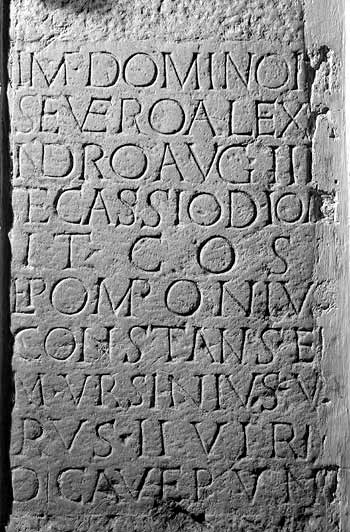 IM·DOMINO I
SEVEROALEX
NDROAVG III
ECASSIODIO I
IT· COS
ET·POMPONIV
CONSTANS·E
M·VRSINIVS·V
RVS·II VIRI
DICAVERVNT